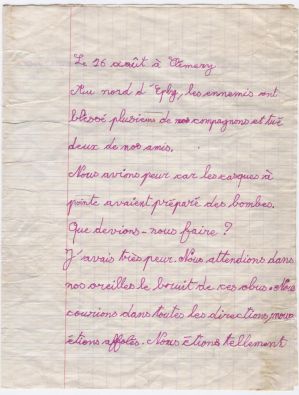 Le 26 août à Cémery
Au nord d'Eply, les ennemis ont
blessé plusieurs de nos compagnons et tué
deux de nos amis.
Nous avions peur car les casques à
pointe avaient préparé des bombes.
Que devions-nous faire ?
J'avais très peur. Nous attendions dans
nos oreilles le bruit de ces obus. Nous
courions dans toutes les directions, nous
étions affolés. Nous étions tellement